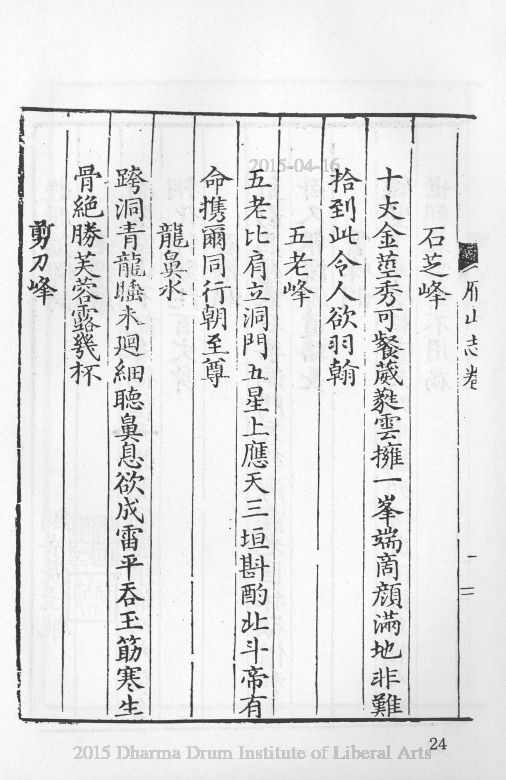 2015-04-16
雁山志卷
一
二
石芝峰
十丈金莖秀可餐葳蕤雲擁一峯端商顔滿地非難
拾到此令人欲羽翰
五老峰
五老比肩立洞門五星上應天三垣斟酌北斗帝有
命携爾同行朝至尊
龍鼻水
跨洞青龍蟠未廻細聽鼻息欲成雷平吞玉筯寒生
骨絕勝芙蓉露幾杯
剪刀峰
24
2015 Dharma Drum Institute of Liberal Arts